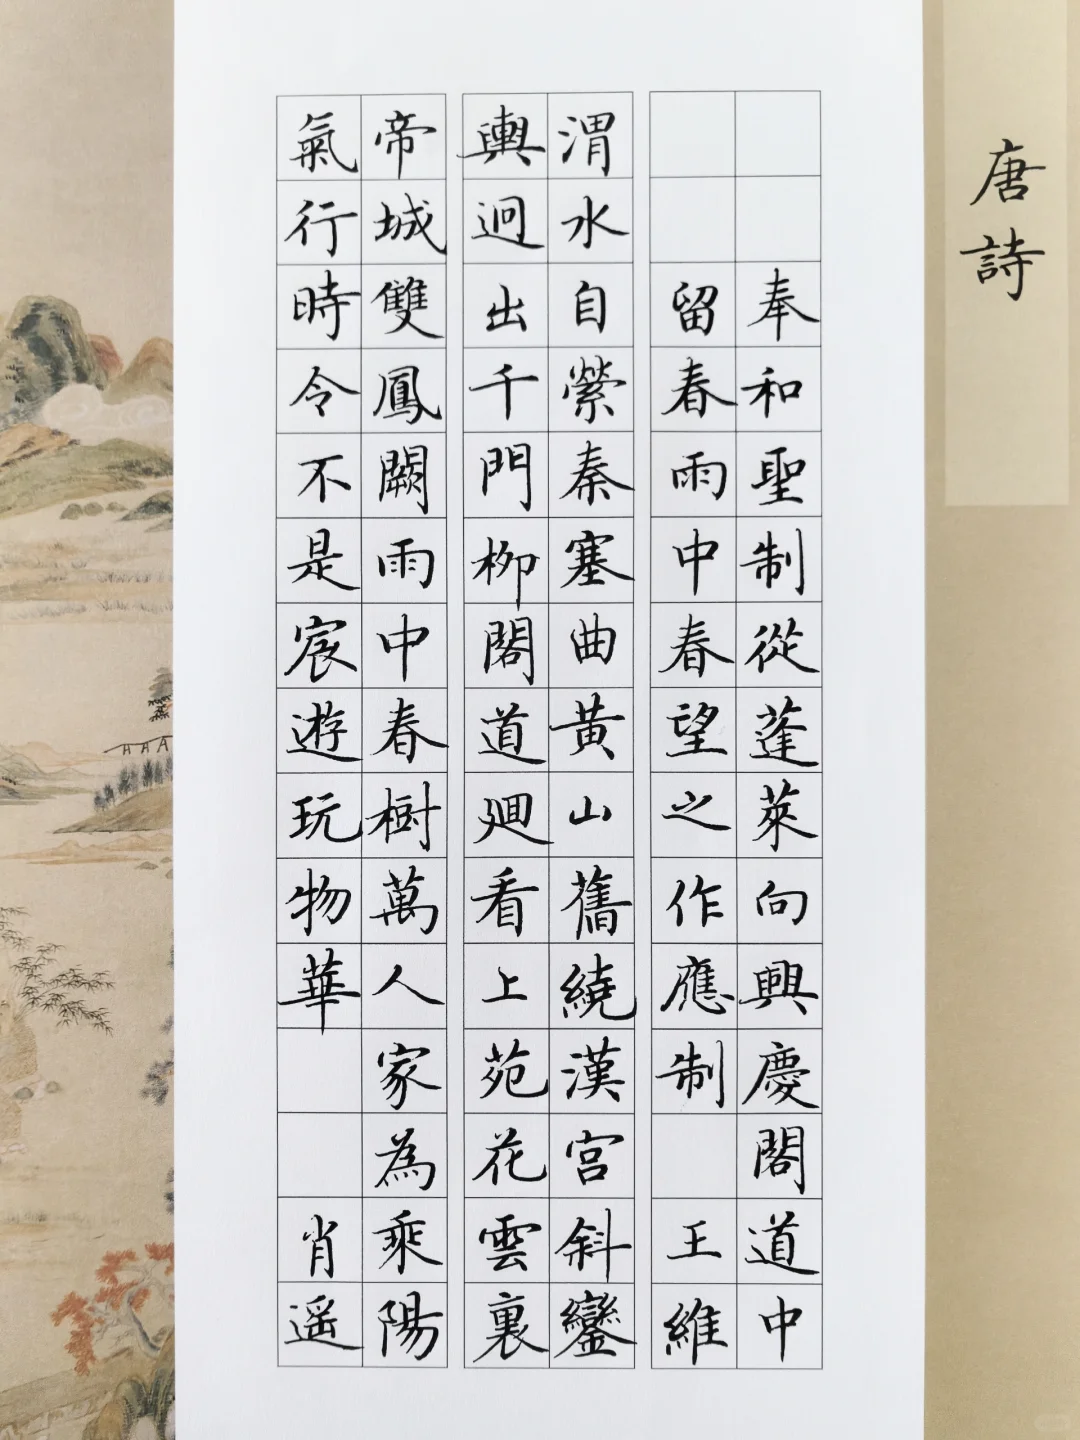 唐詩
奉和聖制從蓬萊向興慶閣道中
留春雨中春望之作應制 王維
渭水自縈秦塞曲黃山舊繞漢宮斜鑾
輿迥出千門柳閣道迴看上苑花雲裏
帝城雙鳳闕雨中春樹萬人家為乘陽
氣行時令不是宸遊玩物華 肖遥